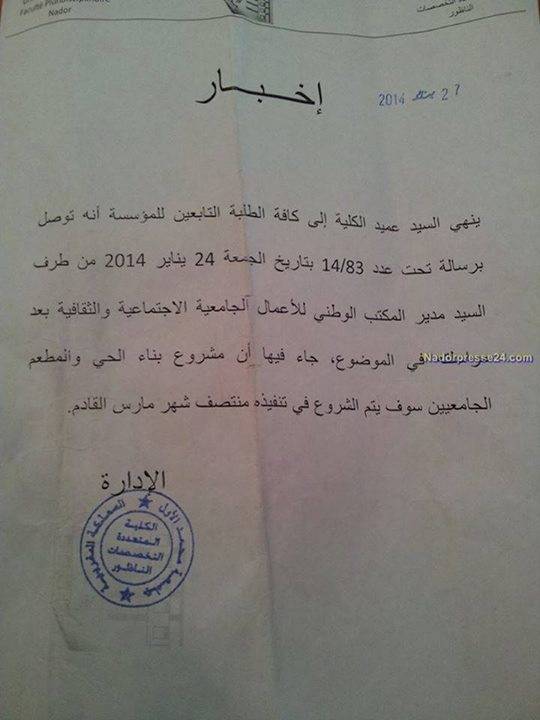 Faculté Pluridisciplinaire
Nador
التخصصات
الناظور
27 يناير 2014
إخبــار
ينهي السيد عميد الكلية إلى كافة الطلبة التابعين للمؤسسة أنه توصل
برسالة تحت عدد 14/83 بتاريخ الجمعة 24 يناير 2014 من طرف
السيد مدير المكتب الوطني للأعمال الجامعية الاجتماعية والثقافية بعد
في الموضوع، جاء فيها أن مشروع بناء الحي والمطعم
Nadorpresse24.com
الجامعيين سوف يتم الشروع في تنفيذه منتصف شهر مارس القادم.
الإدارة
المملكة المغربية
جامعة محمد الأول
الكلية
المتعددة
التخصصات
الناظور